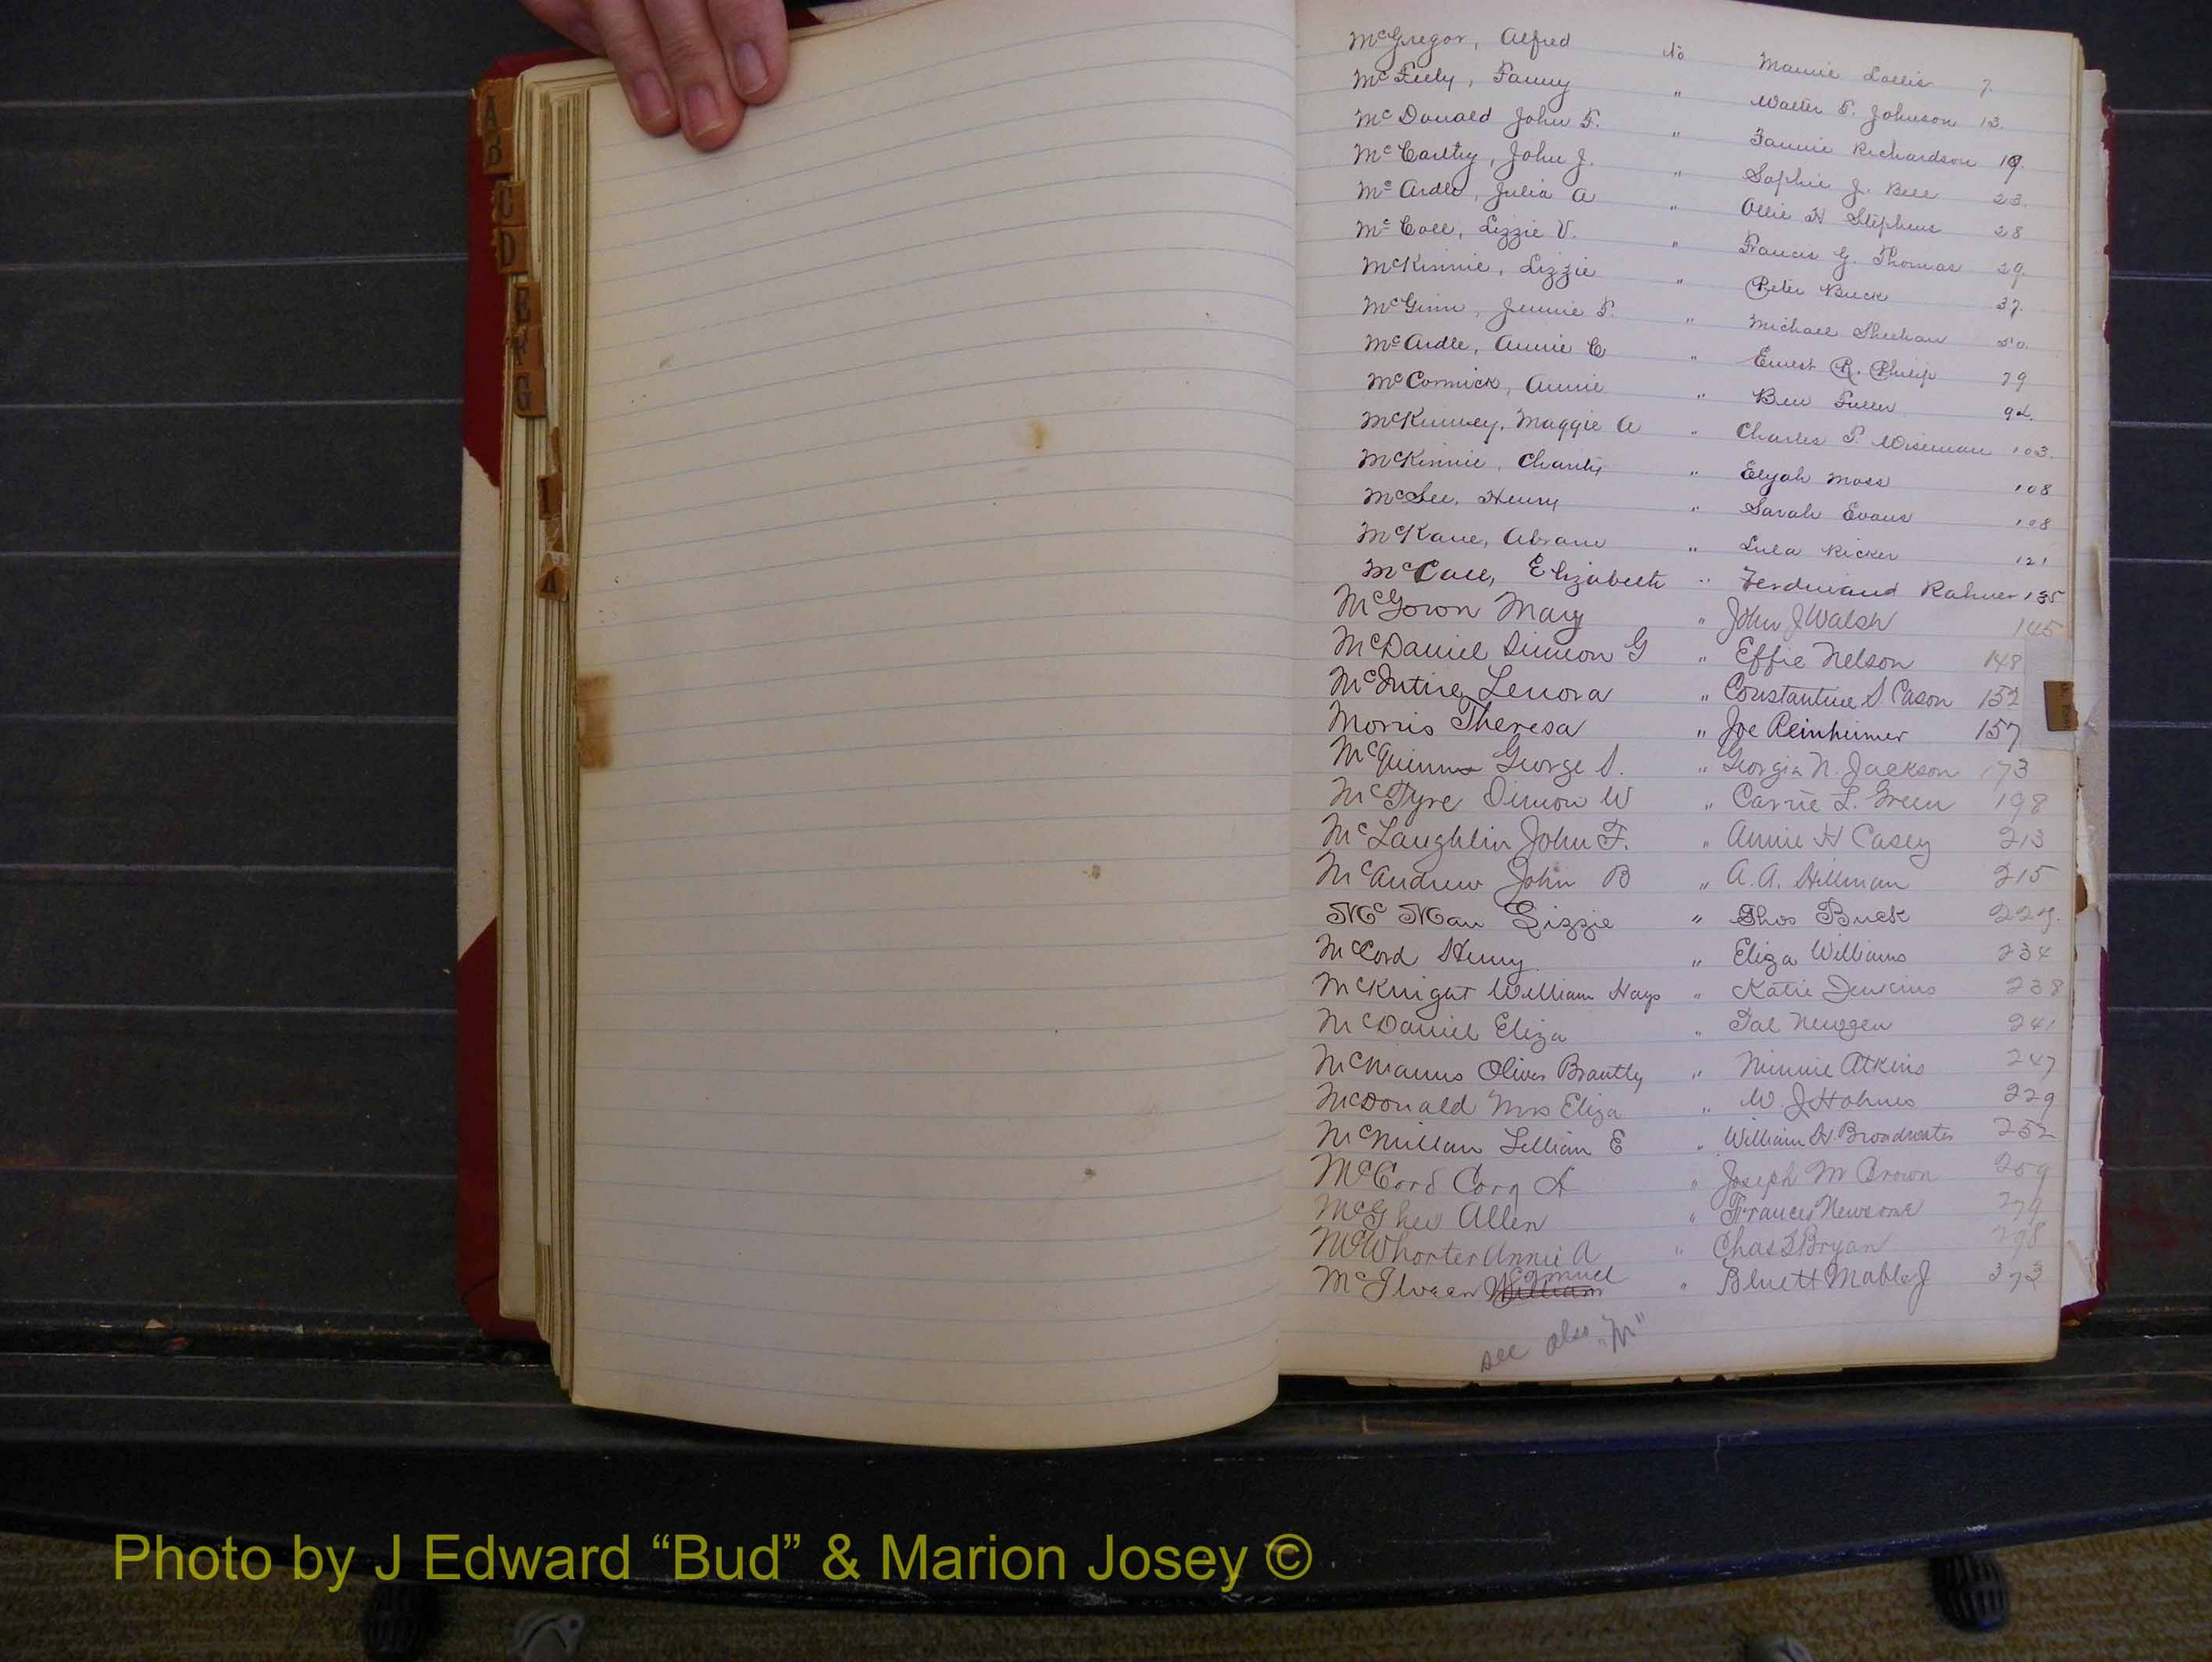 A
B
C
D
E
F
G
I
McGregor, Alfred to Mamie Lollis 7.
McFeely, Fanny " Walter F. Johnson 13.
McDonald John F. " Fannie Richardson 19.
McCarthy, John J. " Sophie J. Bell 23.
McArdle, Julia A " Ollie H Stephens 28
McCall, Lizzie V. " Francis G. Thomas 29.
McKinnie, Lizzie " Peter Buck 37.
McGinn, Jennie F. " Michael Sheehan 50.
McArdle, Annie C " Ernest R. Philip 79
McCormick, Annie " Ben Fuller 92.
McKinney, Maggie A " Charles P. Wiseman 103.
McKinnie, Charity " Elijah Moss 108
McGee, Henry " Sarah Evans 108
McKane, Abram " Lula Ricker 121
McCall, Elizabeth " Ferdinand Rahner 135
McGown Mary " John J Walsh 145
McDaniel Simeon G " Effie Nelson 148
McIntire, Lenora " Constantine S. Cason 152
Morris Theresa " Joe Reinheimer 157
McQuinn George S. " Georgia N. Jackson 173
McTyre Simon W " Carrie L. Green 198
McLaughlin John F. " Annie H Casey 213
McAndrew John B " A. A. Hillman 215
McNan Lizzie " Thos Buck
McCord Henry " Eliza Williams 234
McKnight William Hays " Katie Jenkins 238
McDaniel Eliza " Newgen 241
McManus Oliver Brantly " Minnie Atkins 247
McDonald Mrs Eliza " W. J. Holmes 229
McMillan Lillian E " William H. Broadwater 252
McCord Cora A " Joseph M Brown 259
McGhee Allen " Frances Newsome 279
McWhorter Annie A " Chas S Bryan 298
McIlveen William Samuel " Bluett Mable J 373
see also "M"
Photo by J Edward “Bud” & Marion Josey ©